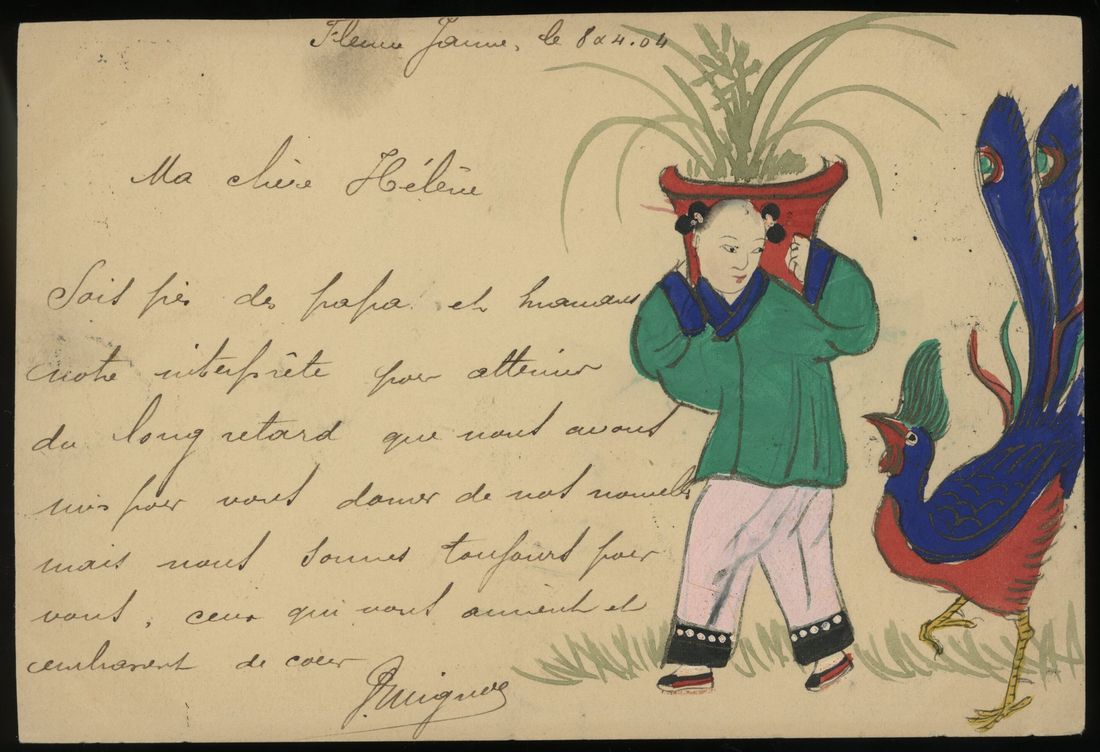 Fleuve Jaune, le 8 x 4.04
Ma chère Hélène
Sois près de papa et maman
notre interprète pour atténuer
du long retard que nous avons
mis pour vous donner de nos nouvelles
mais nous sommes toujours pour
vous, ceux qui vous aiment et
embrassent de coeur